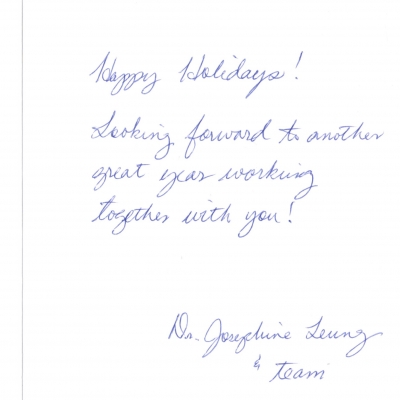 Happy Holidays!
Looking forward to another
great year working
together with you!
Dr. Josephine Leung
& team